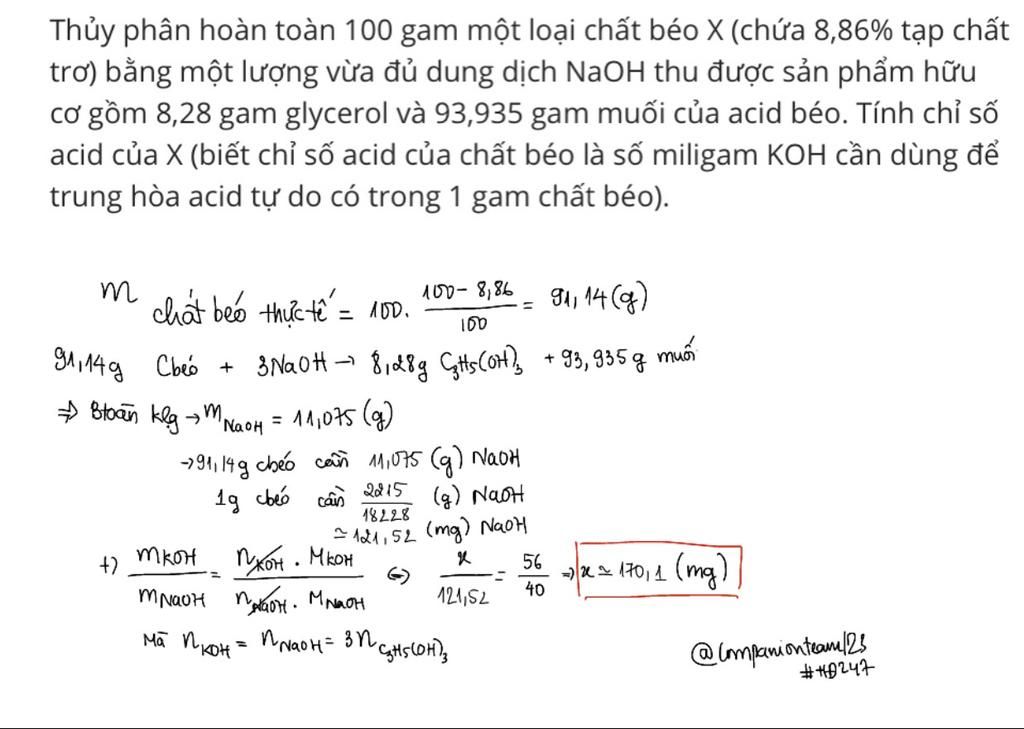 Thủy phân hoàn toàn 100 gam một loại chất béo X (chứa 8,86% tạp chất
trơ) bằng một lượng vừa đủ dung dịch NaOH thu được sản phẩm hữu
cơ gồm 8,28 gam glycerol và 93,935 gam muối của acid béo. Tính chỉ số
acid của X (biết chỉ số acid của chất béo là số miligam KOH cần dùng để
trung hòa acid tự do có trong 1 gam chất béo).
m chất béo thực tế = 100. (100 - 8,86)/100 = 91,14 (g)
91,14g Cbéo + 3NaOH → 8,28g C₃H₅(OH)₃ + 93,935g muối
⇒ Btoàn klg → m NaOH = 11,075 (g)
→ 91,14g cbéo cần 11,075 (g) NaOH
1g cbéo cần 2215/18228 (g) NaOH
≃ 121,52 (mg) NaOH
+) mKOH/mNaOH = nKOH . MKOH/nNaOH . MNaOH ⇔ x/121,52 = 56/40 ⇒ x ≃ 170,1 (mg)
Mà nKOH = nNaOH = 3nC₃H₅(OH)₃
@Companionteam123
#HD247